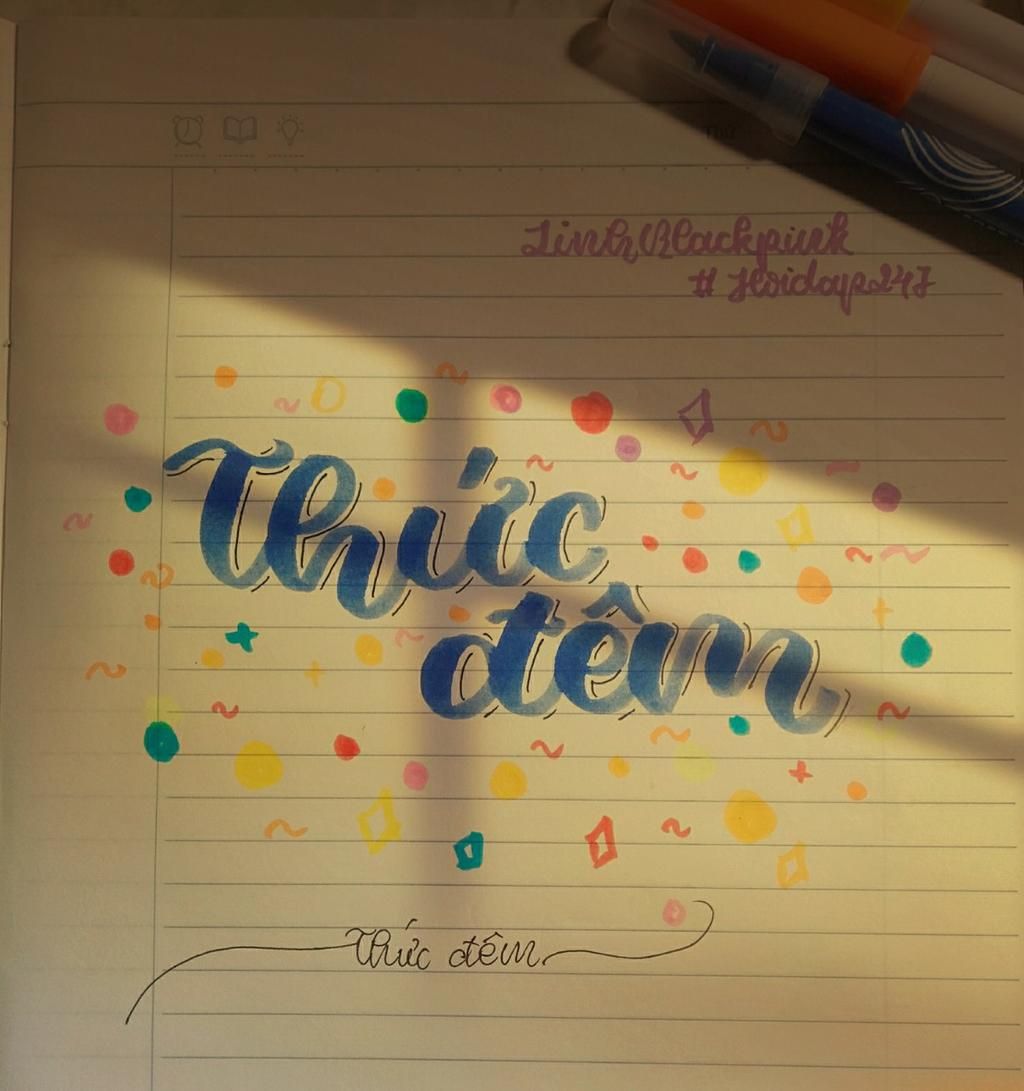 LinhBlackpink
# Hoidap247
Thức
đêm
Thức đêm